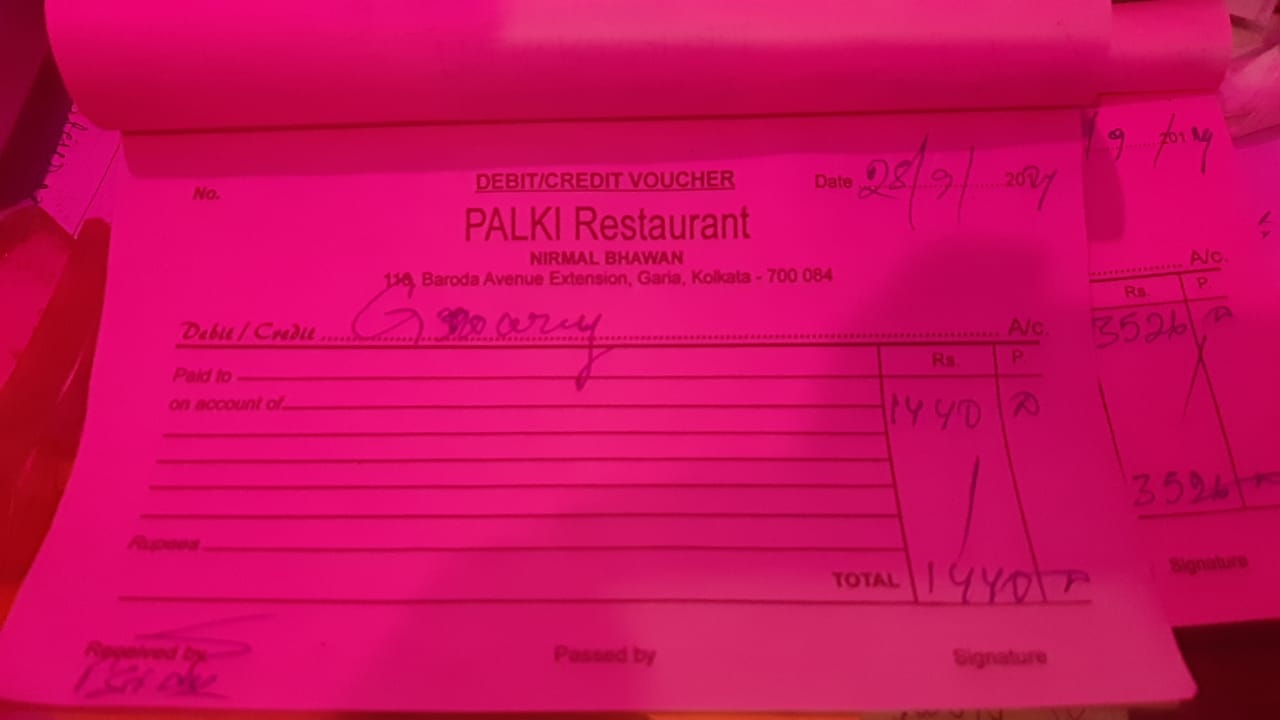 No.
DEBIT/CREDIT VOUCHER
Date 28/9/2024
PALKI Restaurant
NIRMAL BHAWAN
116, Baroda Avenue Extension, Garia, Kolkata - 700 084
Debit / Credit A/c.
Paid to
Rs. P.
on account of
1440
Rupees
TOTAL 1440
Received by
Passed by
Signature
A/c.
Rs. P.
3526
3526
Signature